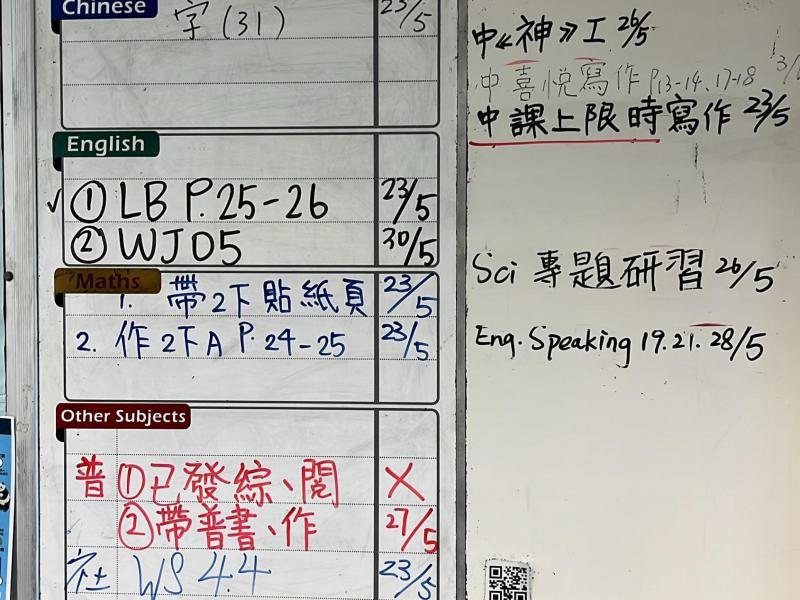 Chinese
字(31) 23/5
English
✓ ① LB P.25-26 23/5
② WJ05 30/5
Maths
1. 帶2下貼紙頁 23/5
2. 作2下A P.24-25 23/5
Other Subjects
普 ①已發綜、閱 X
②帶普書、作 27/5
社 WS 4.4 23/5
中《神》工 26/5
中喜悅寫作 P.13-14、17-18
中課上限時寫作 23/5
Sci 專題研習 26/5
Eng. Speaking 19.21.28/5